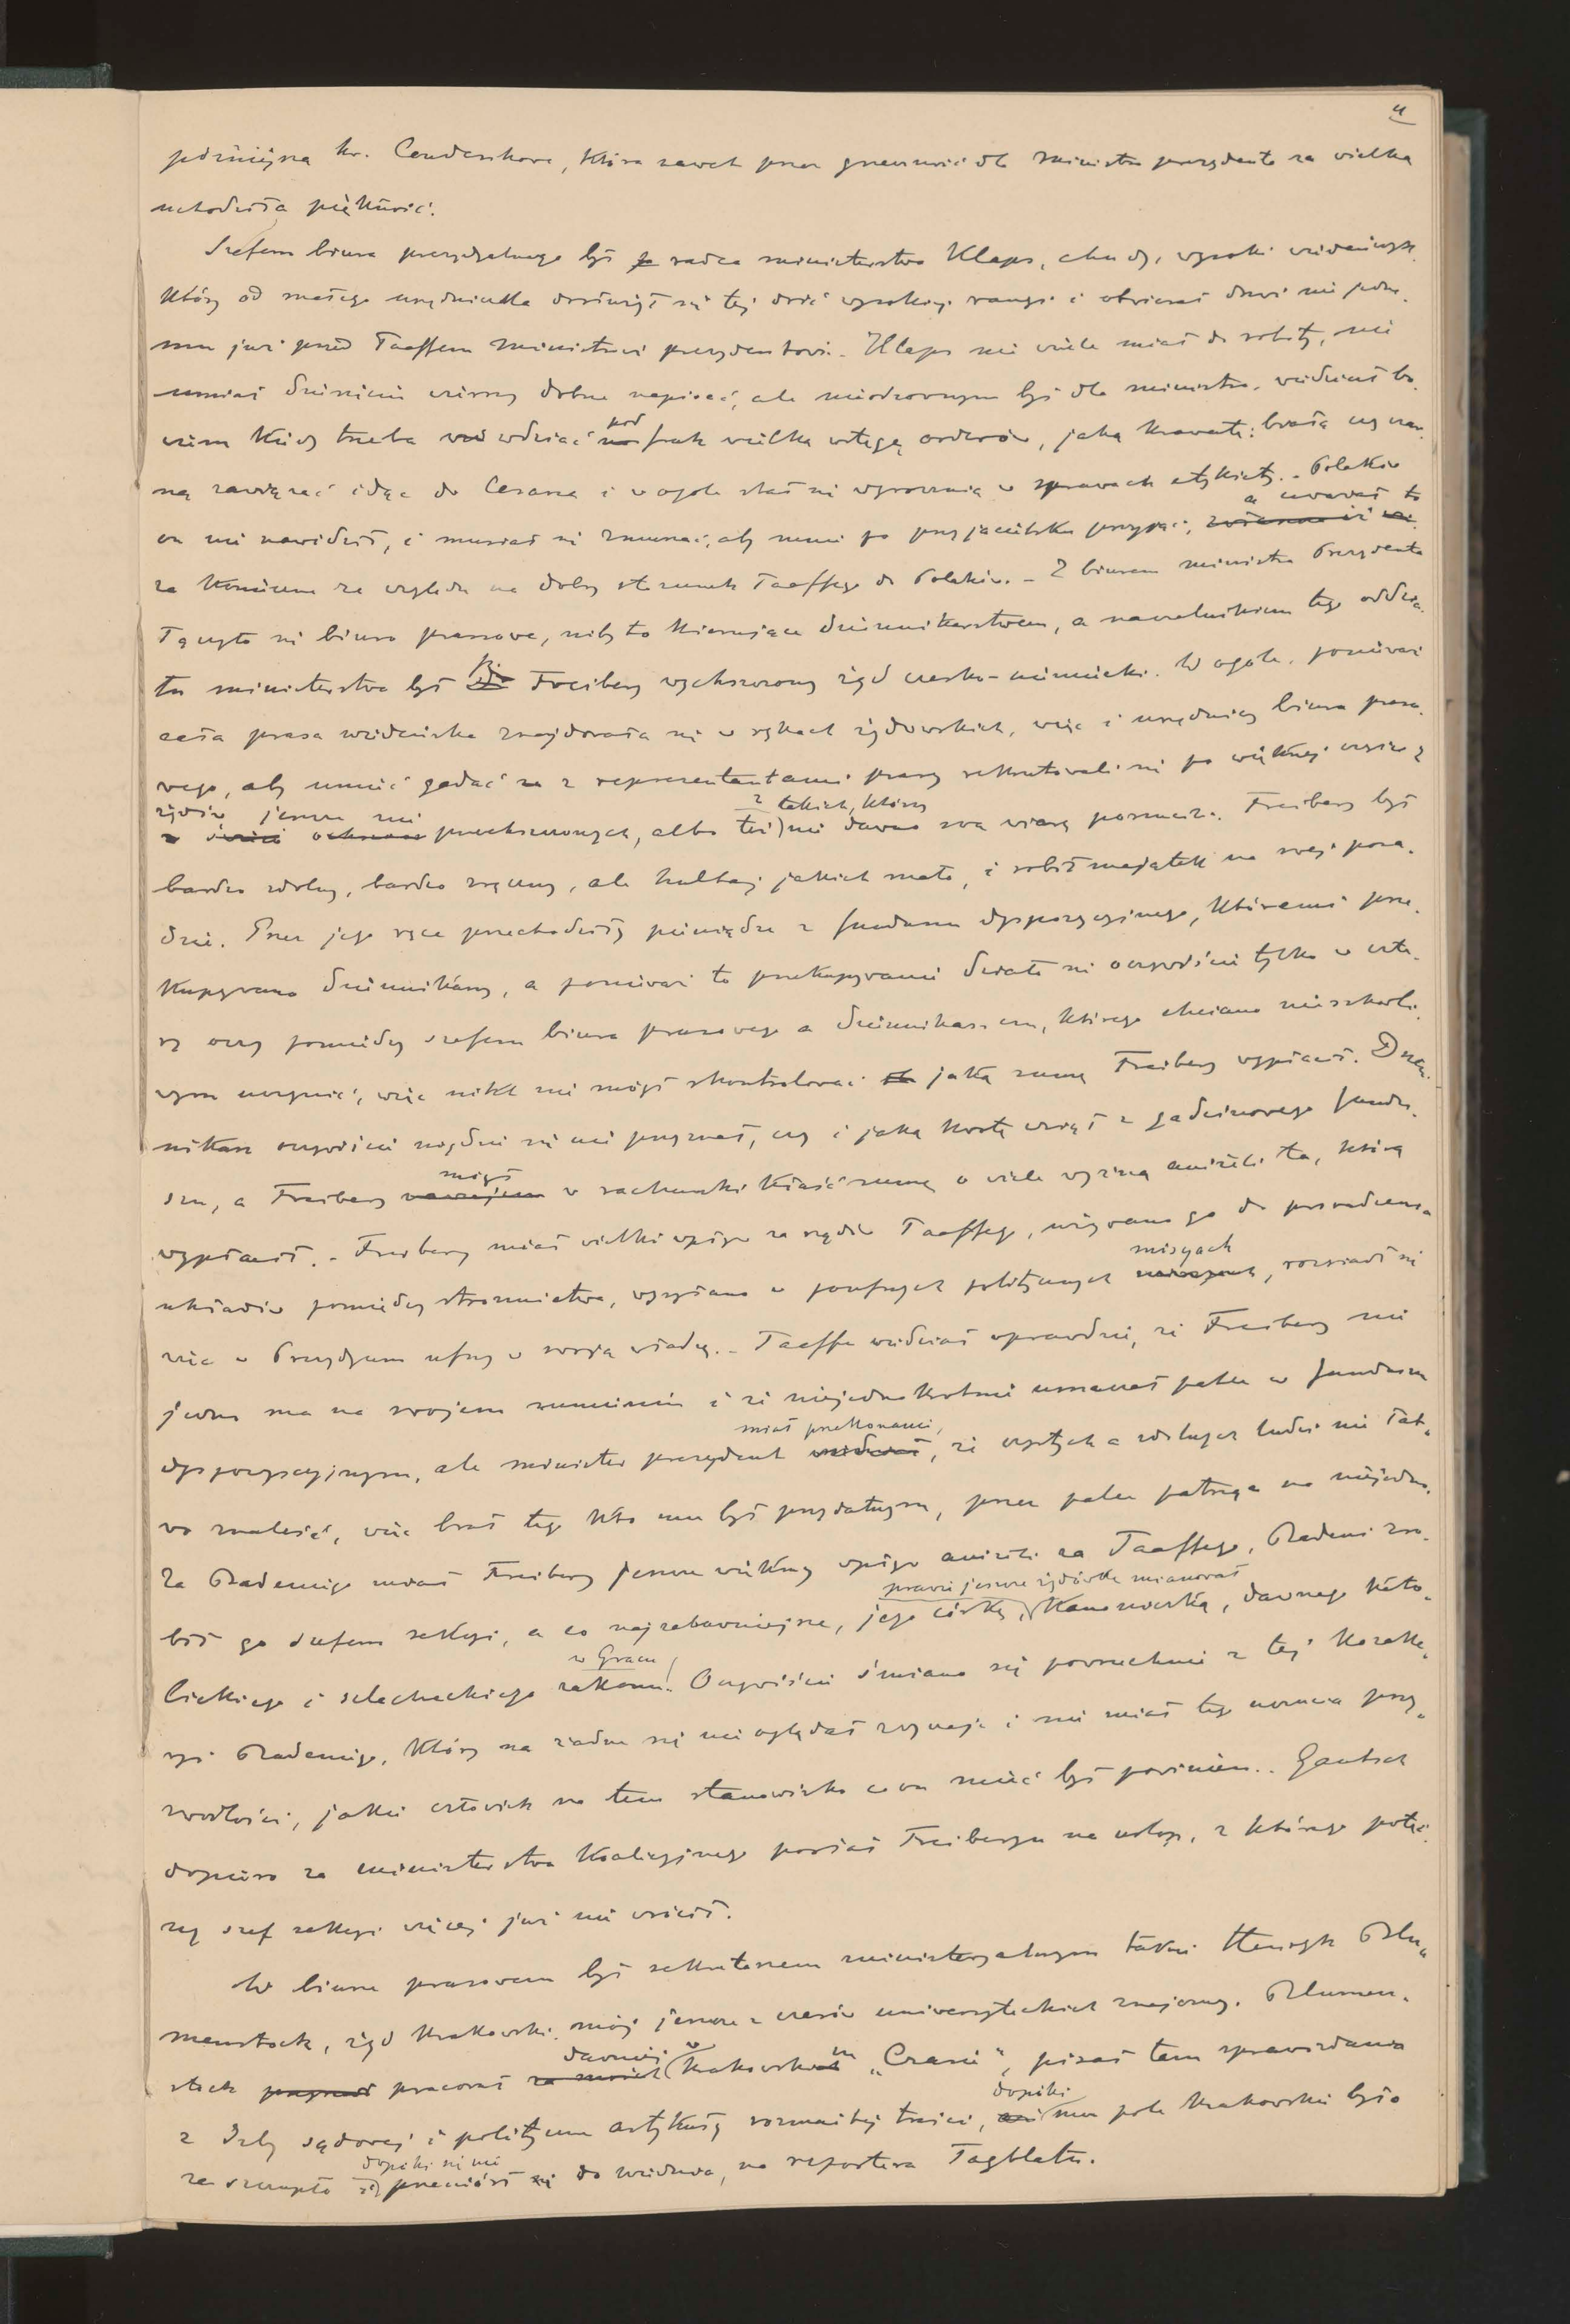 4
późniejsza hr. Coudenhove, która nawet przez grzeczność dla ministra prezydenta za wielką
uchodziła piękność.
Szefem biura prezydyalnego był radca ministerstwa Klaps, chudy, wysoki wiedeńczyk,
który od małego urzędniczka dosłużył się tej dość wysokiej rangi i otwierał drzwi nie jedne-
mu już przed Taaffem ministrowi prezydentowi. - Klaps nie wiele miał do roboty, nie
umiał dziesięciu wierszy dobrze napisać, ale nieodzownym był dla ministra, wiedział bo-
wiem kiedy trzeba wdziać pod frak wielką wstęgę orderów, jaką krawatę: białą czy czar-
ną zawiązać idąc do Cesarza i w ogóle stał się wyrocznią w sprawach etykiety. - Polaków
on nie nawidził, i musiał się zmuszać, aby mnie po przyjacielsku przyjąć, a uważał to
za konieczne ze względu na dobry stosunek Taaffego do Polaków. - Z biurem ministra Prezydenta
łączyło się biuro prasowe, niby to kierujące dziennikarstwem, a naczelnikiem tego oddzia-
łu ministerstwa był Freiberg wychrzczony żyd czesko-niemiecki. W ogóle, ponieważ
cała prasa wiedeńska znajdowała się w rękach żydowskich, więc i urzędnicy biura praso-
wego, aby umieć gadać z reprezentantami prasy rekrutowali się po większej części z
żydów jeszcze nie przechrzczonych, albo też z takich, którzy nie dawno swą wiarę porzucili. Freiberg był
bardzo zdolny, bardzo zręczny, ale hultaj jakich mało, i robił majątek na swej posa-
dzie. Przez jego ręce przechodziły pieniądze z funduszu dyspozycyjnego, któremi prze-
kupywano dziennikarzy, a ponieważ to przekupywanie działo się oczywiście tylko w czte-
ry oczy pomiędzy szefem biura prasowego a dziennikarzem, którego chciano nieszkodli-
wym uczynić, więc nikt nie mógł skontrolować jaką sumę Freiberg wypłacił. Dzien-
nikarz oczywiście nigdzie się nie przyznał, czy i jaką kwotę wziął z gadzinowego fundu-
szu, a Freiberg mógł w rachunki kłaść sumę o wiele wyższą aniżeli ta, którą
wypłacił. - Freiberg miał wielki wpływ za rządów Taaffego, używano go do prowadzenia
układów pomiędzy stronnictwa, wysyłano w poufnych politycznych misyach, rozsiadł się
więc w Prezydyum ufny w swoją władzę. - Taaffe wiedział wprawdzie, że Freiberg nie
jedno ma na swojem sumieniu i że niejednokrotnie umaczał palce w funduszu
dyspozycyjnym, ale minister prezydent miał przekonanie, że czystych a zdolnych ludzi nie łat-
wo znaleść, więc brał tego kto mu był przydatnym, przez palce patrząc na niejedno.
Za Badeniego miał Freiberg jeszcze większy wpływ aniżeli za Taaffego, Badeni zro-
bił go szefem sekcyi, a co najzabawniejsze, jego córkę, prawie jeszcze żydówkę mianował kanoniczką, dawnego kato-
lickiego i szlacheckiego zakonu w Gracu. Oczywiście śmiano się powszechnie z tej kozake-
ryi Badeniego, który na żadne się nie oglądał zwyczaje i nie miał tego uczucia przy-
zwoitości, jakie człowiek na tem stanowisku co on mieć był powinien.. Gautsch
dopiero za ministerstwa koalicyjnego posłał Freiberga na urlop, z którego potęż-
ny szef sekcyi więcej już nie wrócił.
W biurze prasowem był sekretarzem ministeryalnym także Henryk Blu-
menstock, żyd krakowski, mój jeszcze z czasów uniwersyteckich znajomy. Blumen-
stock pracował dawniej w krakowskim „Czasie”, pisał tam sprawozdania
z Izby sądowej i polityczne artykuły rozmaitej treści, dopóki mu pole krakowskie było
za szczupłe dopóki się nie przeniósł do Wiednia, na reportera Tagblattu.